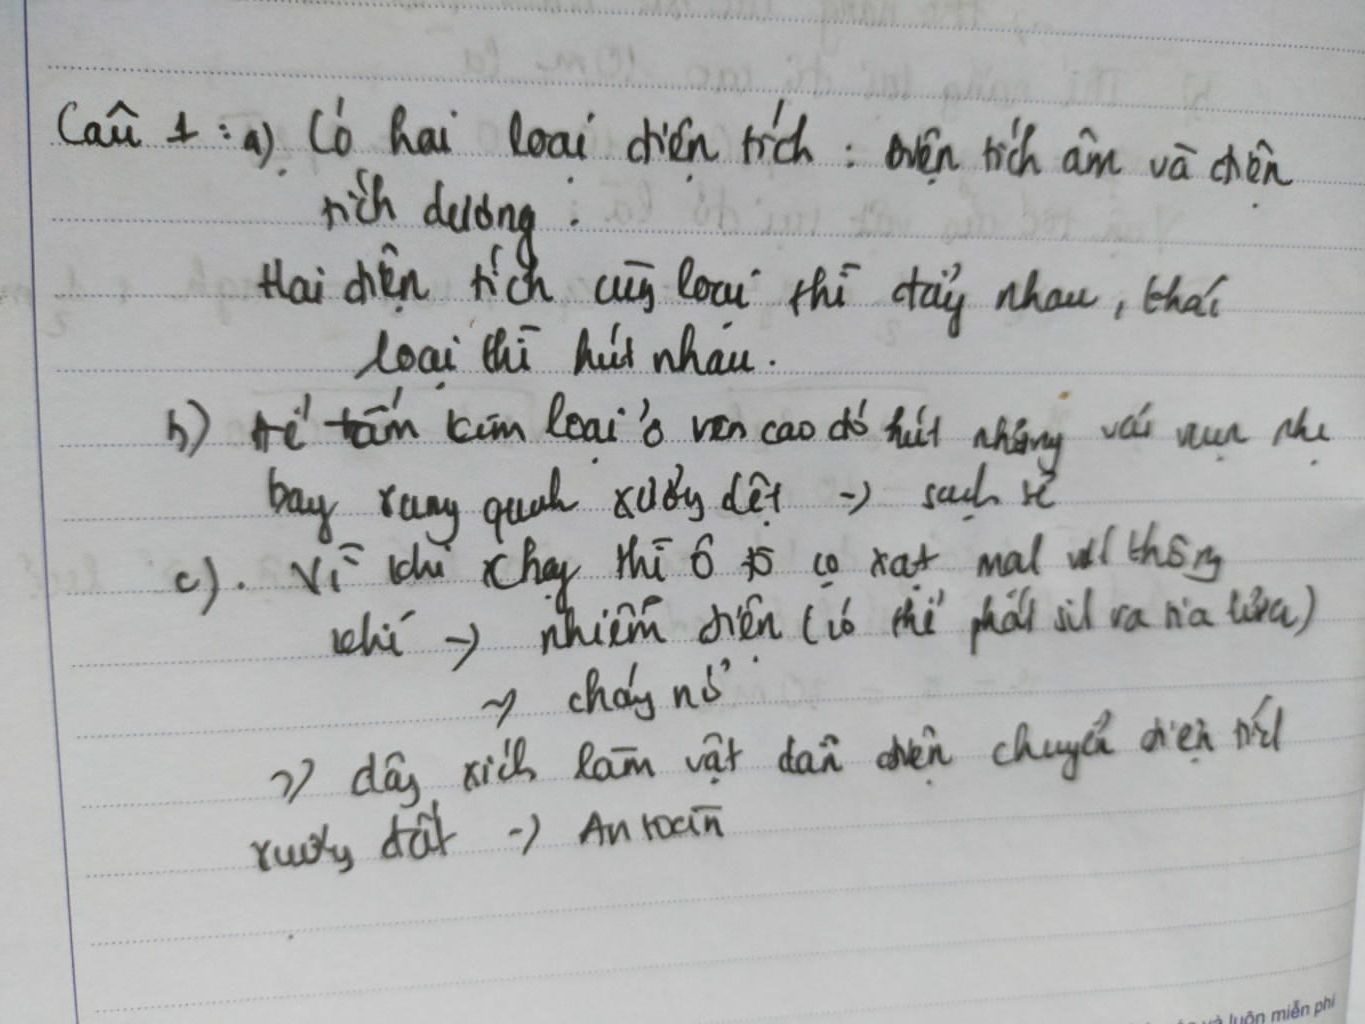 Câu 1 : a) Có hai loại điện tích : điện tích âm và điện
tích dương .
Hai điện tích cùng loại thì đẩy nhau , khác
loại thì hút nhau .
b) Để tấm kim loại ở trên cao để hút những vải vụn nhẹ
bay xung quanh xưởng dệt -> sạch sẽ
c) . Vì khi chạy thì ô tô cọ xát mạnh với không
khí -> nhiễm điện ( có thể phát sinh ra tia lửa )
-> cháy nổ
=> dây xích làm vật dẫn điện chuyển điện tích
xuống đất -> An toàn
và luôn miễn phí